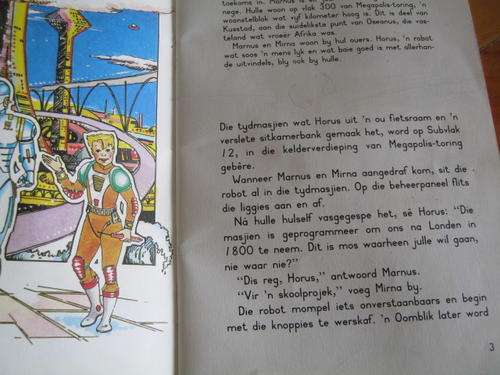 toekoms in. Marnus is
nege. Hulle woon op vlak 300 van Megapolis-toring, 'n
woonstelblok wat vyf kilometer hoog is. Dit is deel van
Kusstad, aan die suidelikste punt van Oseanus, die vas-
teland wat vroeër Afrika was.
Marnus en Mirna woon by hul ouers. Horus, 'n robot
wat soos 'n mens lyk en wat baie goed is met allerhan-
de uitvindsels, bly ook by hulle.
Die tydmasjien wat Horus uit 'n ou fietsraam en 'n
verslete sitkamerbank gemaak het, word op Subvlak
12, in die kelderverdieping van Megapolis-toring
gebêre.
Wanneer Marnus en Mirna aangedraf kom, sit die
robot al in die tydmasjien. Op die beheerpaneel flits
die liggies aan en af.
Ná hulle hulself vasgespe het, sê Horus: "Die
masjien is geprogrammeer om ons na Londen in
1800 te neem. Dit is mos waarheen julle wil gaan,
nie waar nie?"
"Dis reg, Horus," antwoord Marnus.
"Vir 'n skoolprojek," voeg Mirna by.
Die robot mompel iets onverstaanbaars en begin
met die knoppies te werskaf. 'n Oomblik later word
3